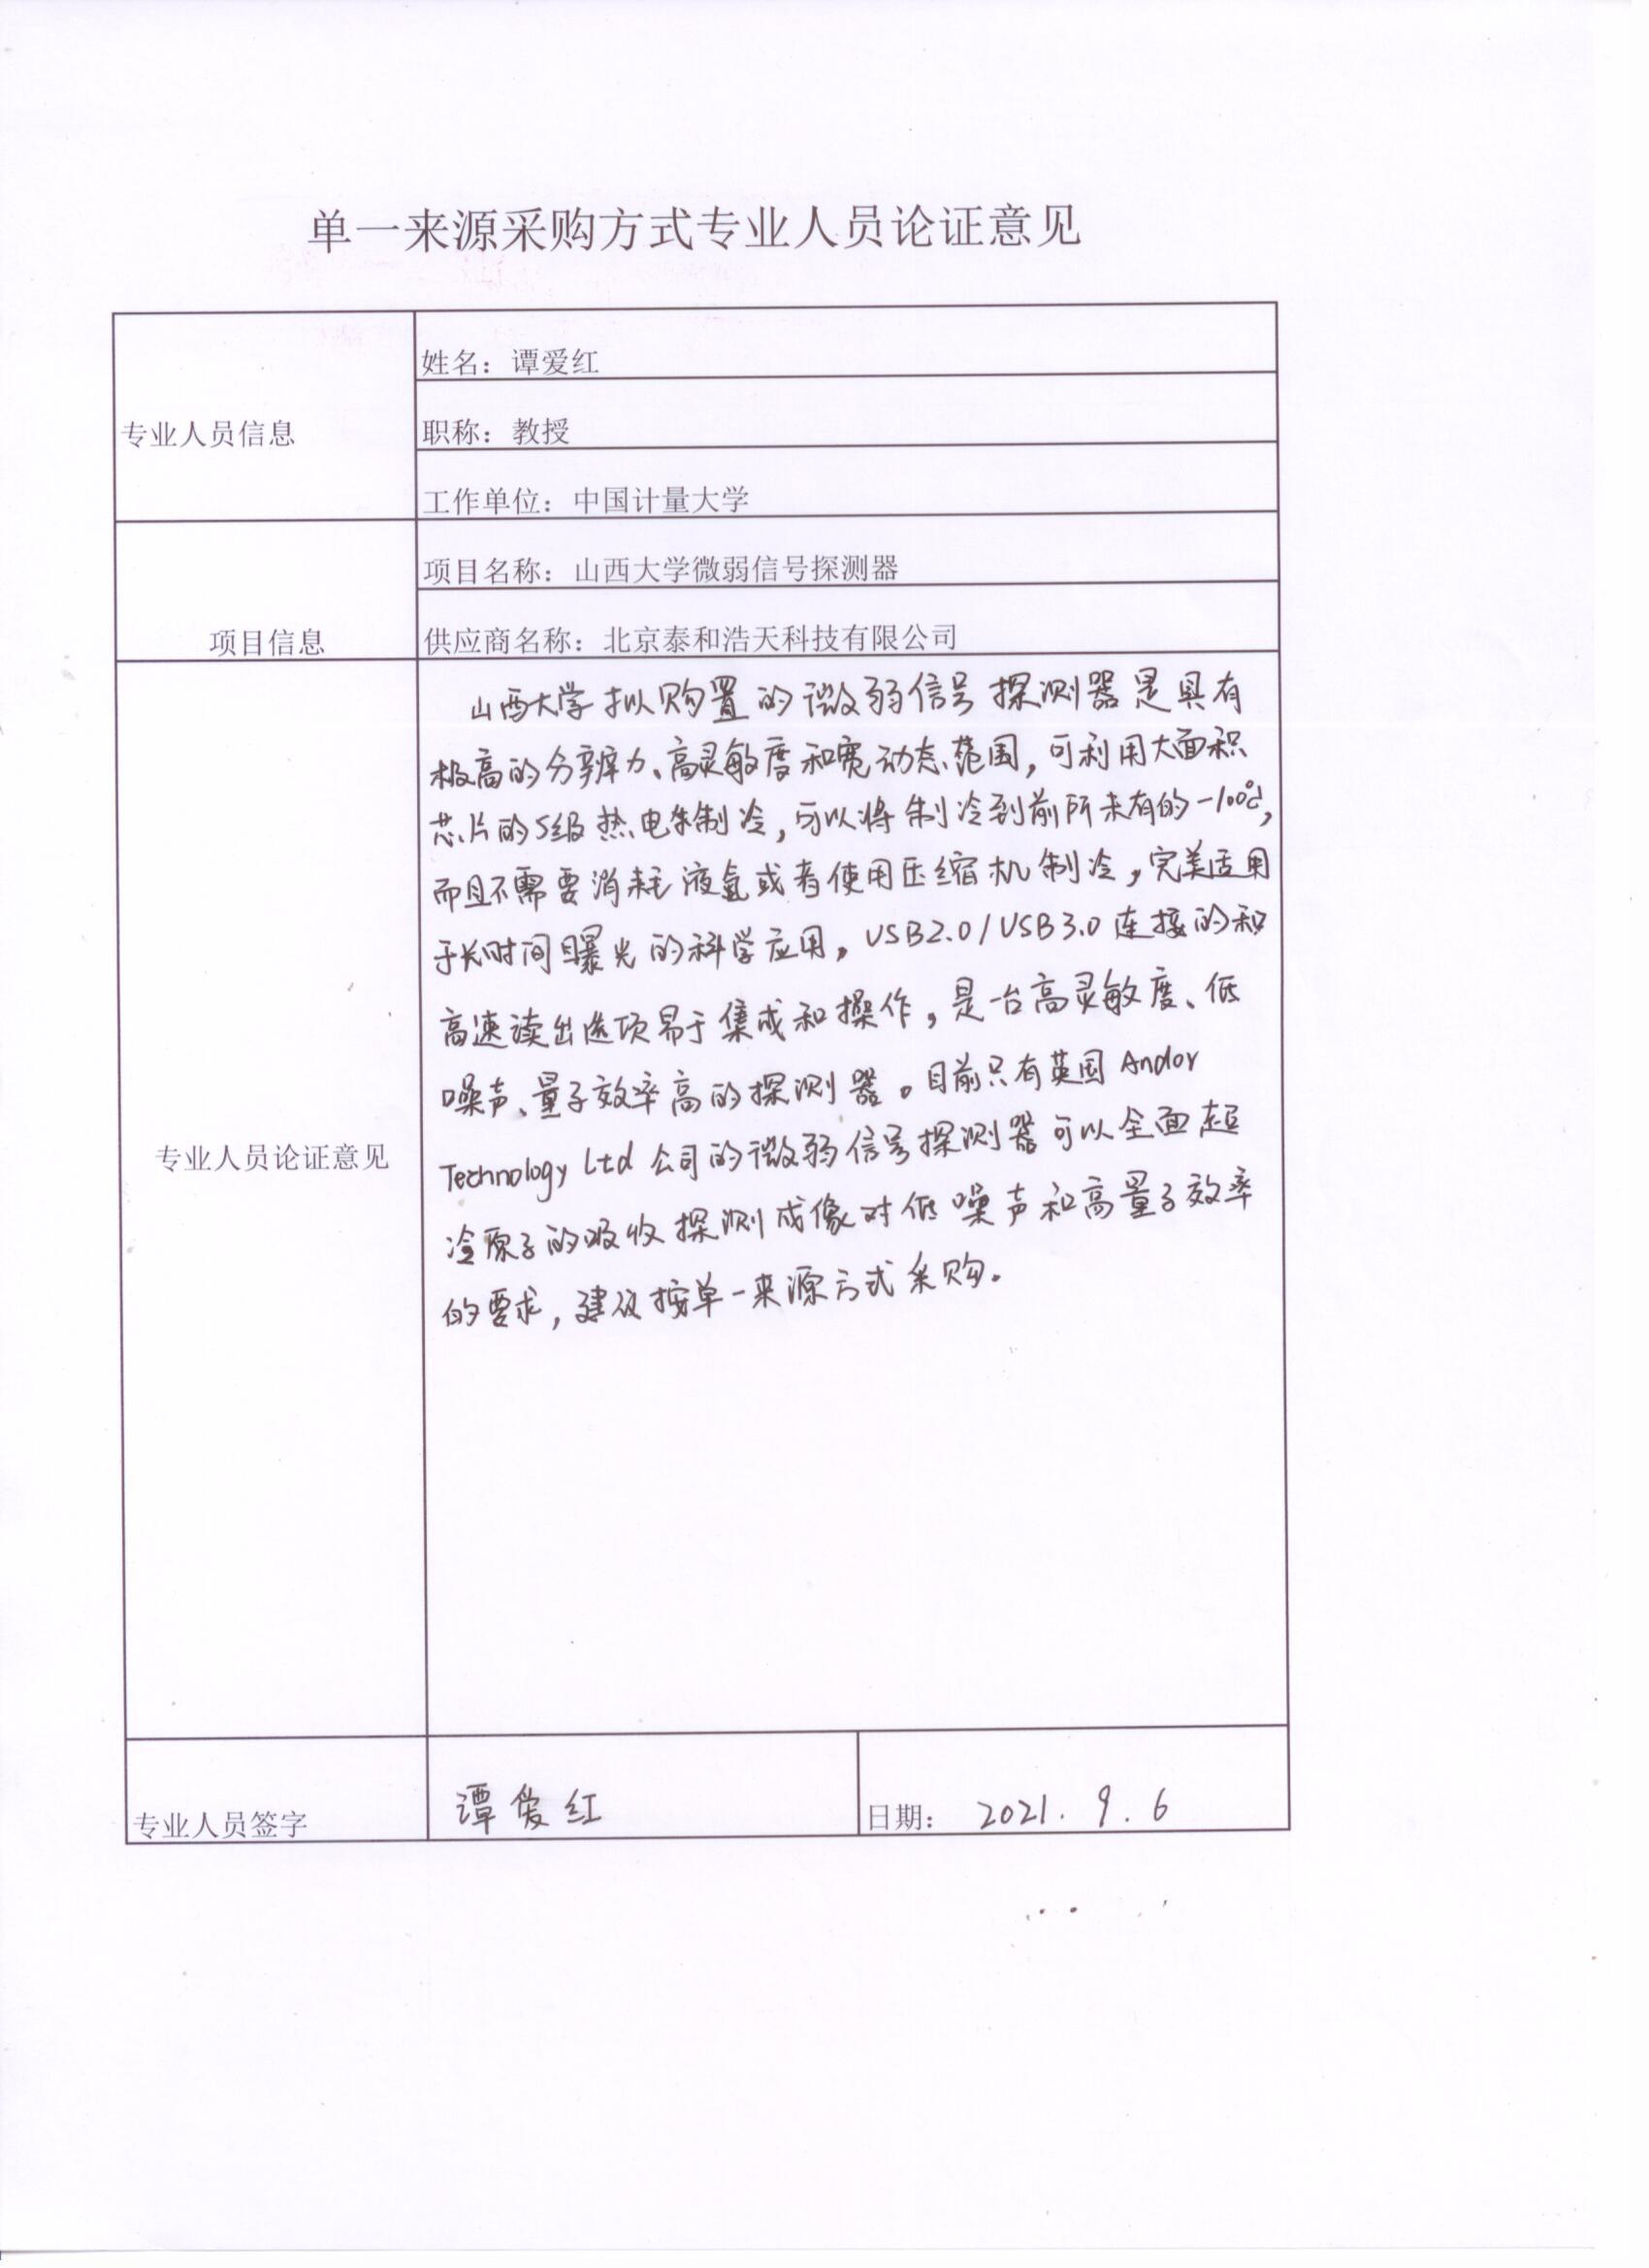 单一来源采购方式专业人员论证意见
专业人员信息
姓名：谭爱红
职称：教授
工作单位：中国计量大学
项目信息
项目名称：山西大学微弱信号探测器
供应商名称：北京泰和浩天科技有限公司
专业人员论证意见
山西大学拟购置的微弱信号探测器是具有
极高的分辨力、高灵敏度和宽动态范围，可利用大面积
芯片的5级热电制冷，可以将制冷到前所未有的-100℃，
而且不需要消耗液氮或者使用压缩机制冷，完美适用
于长时间曝光的科学应用，USB2.0/USB3.0连接的和
高速读出选项易于集成和操作，是一台高灵敏度、低
噪声、量子效率高的探测器。目前只有英国Andor
Technology Ltd公司的微弱信号探测器可以全面超
冷原子的吸收探测成像对低噪声和高量子效率
的要求，建议按单一来源方式采购。
专业人员签字
谭爱红
日期： 2021.9.6